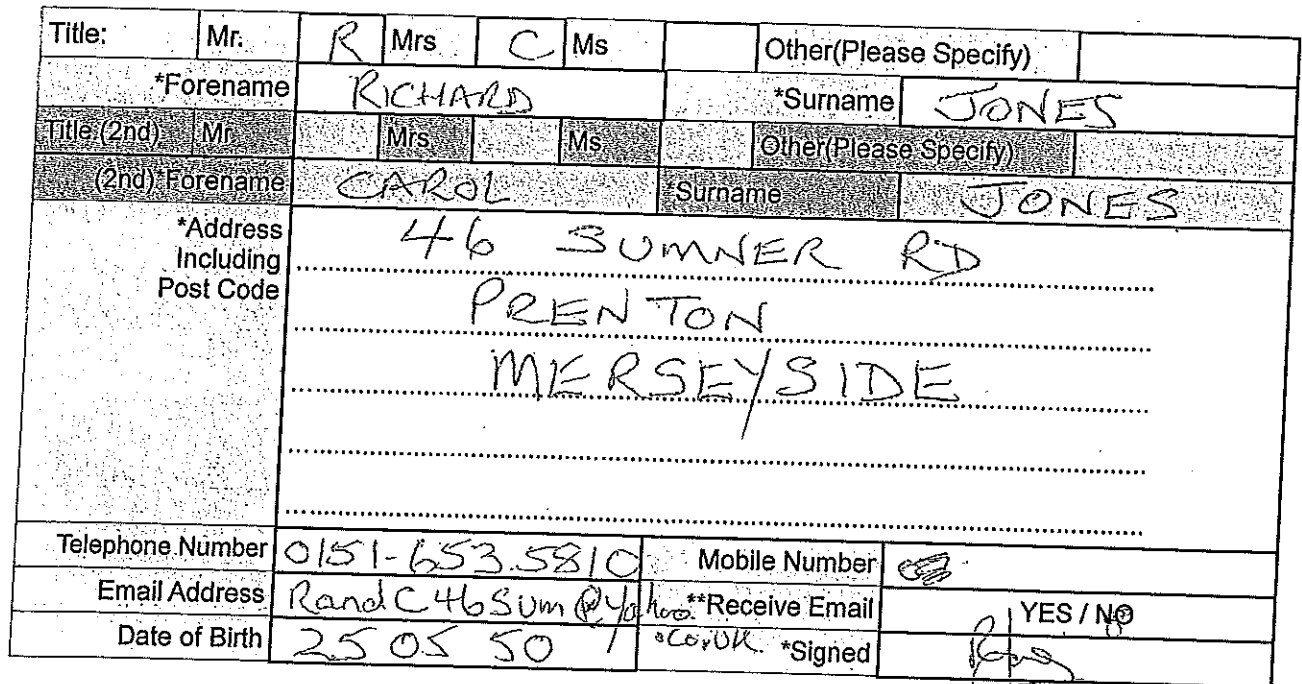 Title: Mr. R Mrs C Ms Other(Please Specify)
*Forename RICHARD *Surname JONES
Title (2nd) Mr Mrs Ms Other(Please Specify)
(2nd)*Forename CAROL *Surname JONES
*Address 46 SUMNER RD
Including
Post Code PRENTON
MERSEYSIDE
Telephone Number 0151-653.5810 Mobile Number
Email Address RandC46Sum@Yahoo **Receive Email YES / NO
.Co.UK
Date of Birth 25 05 50 *Signed